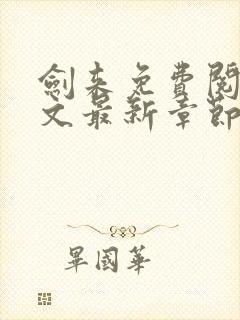 劍來免費閱
文最新章節
畢國華